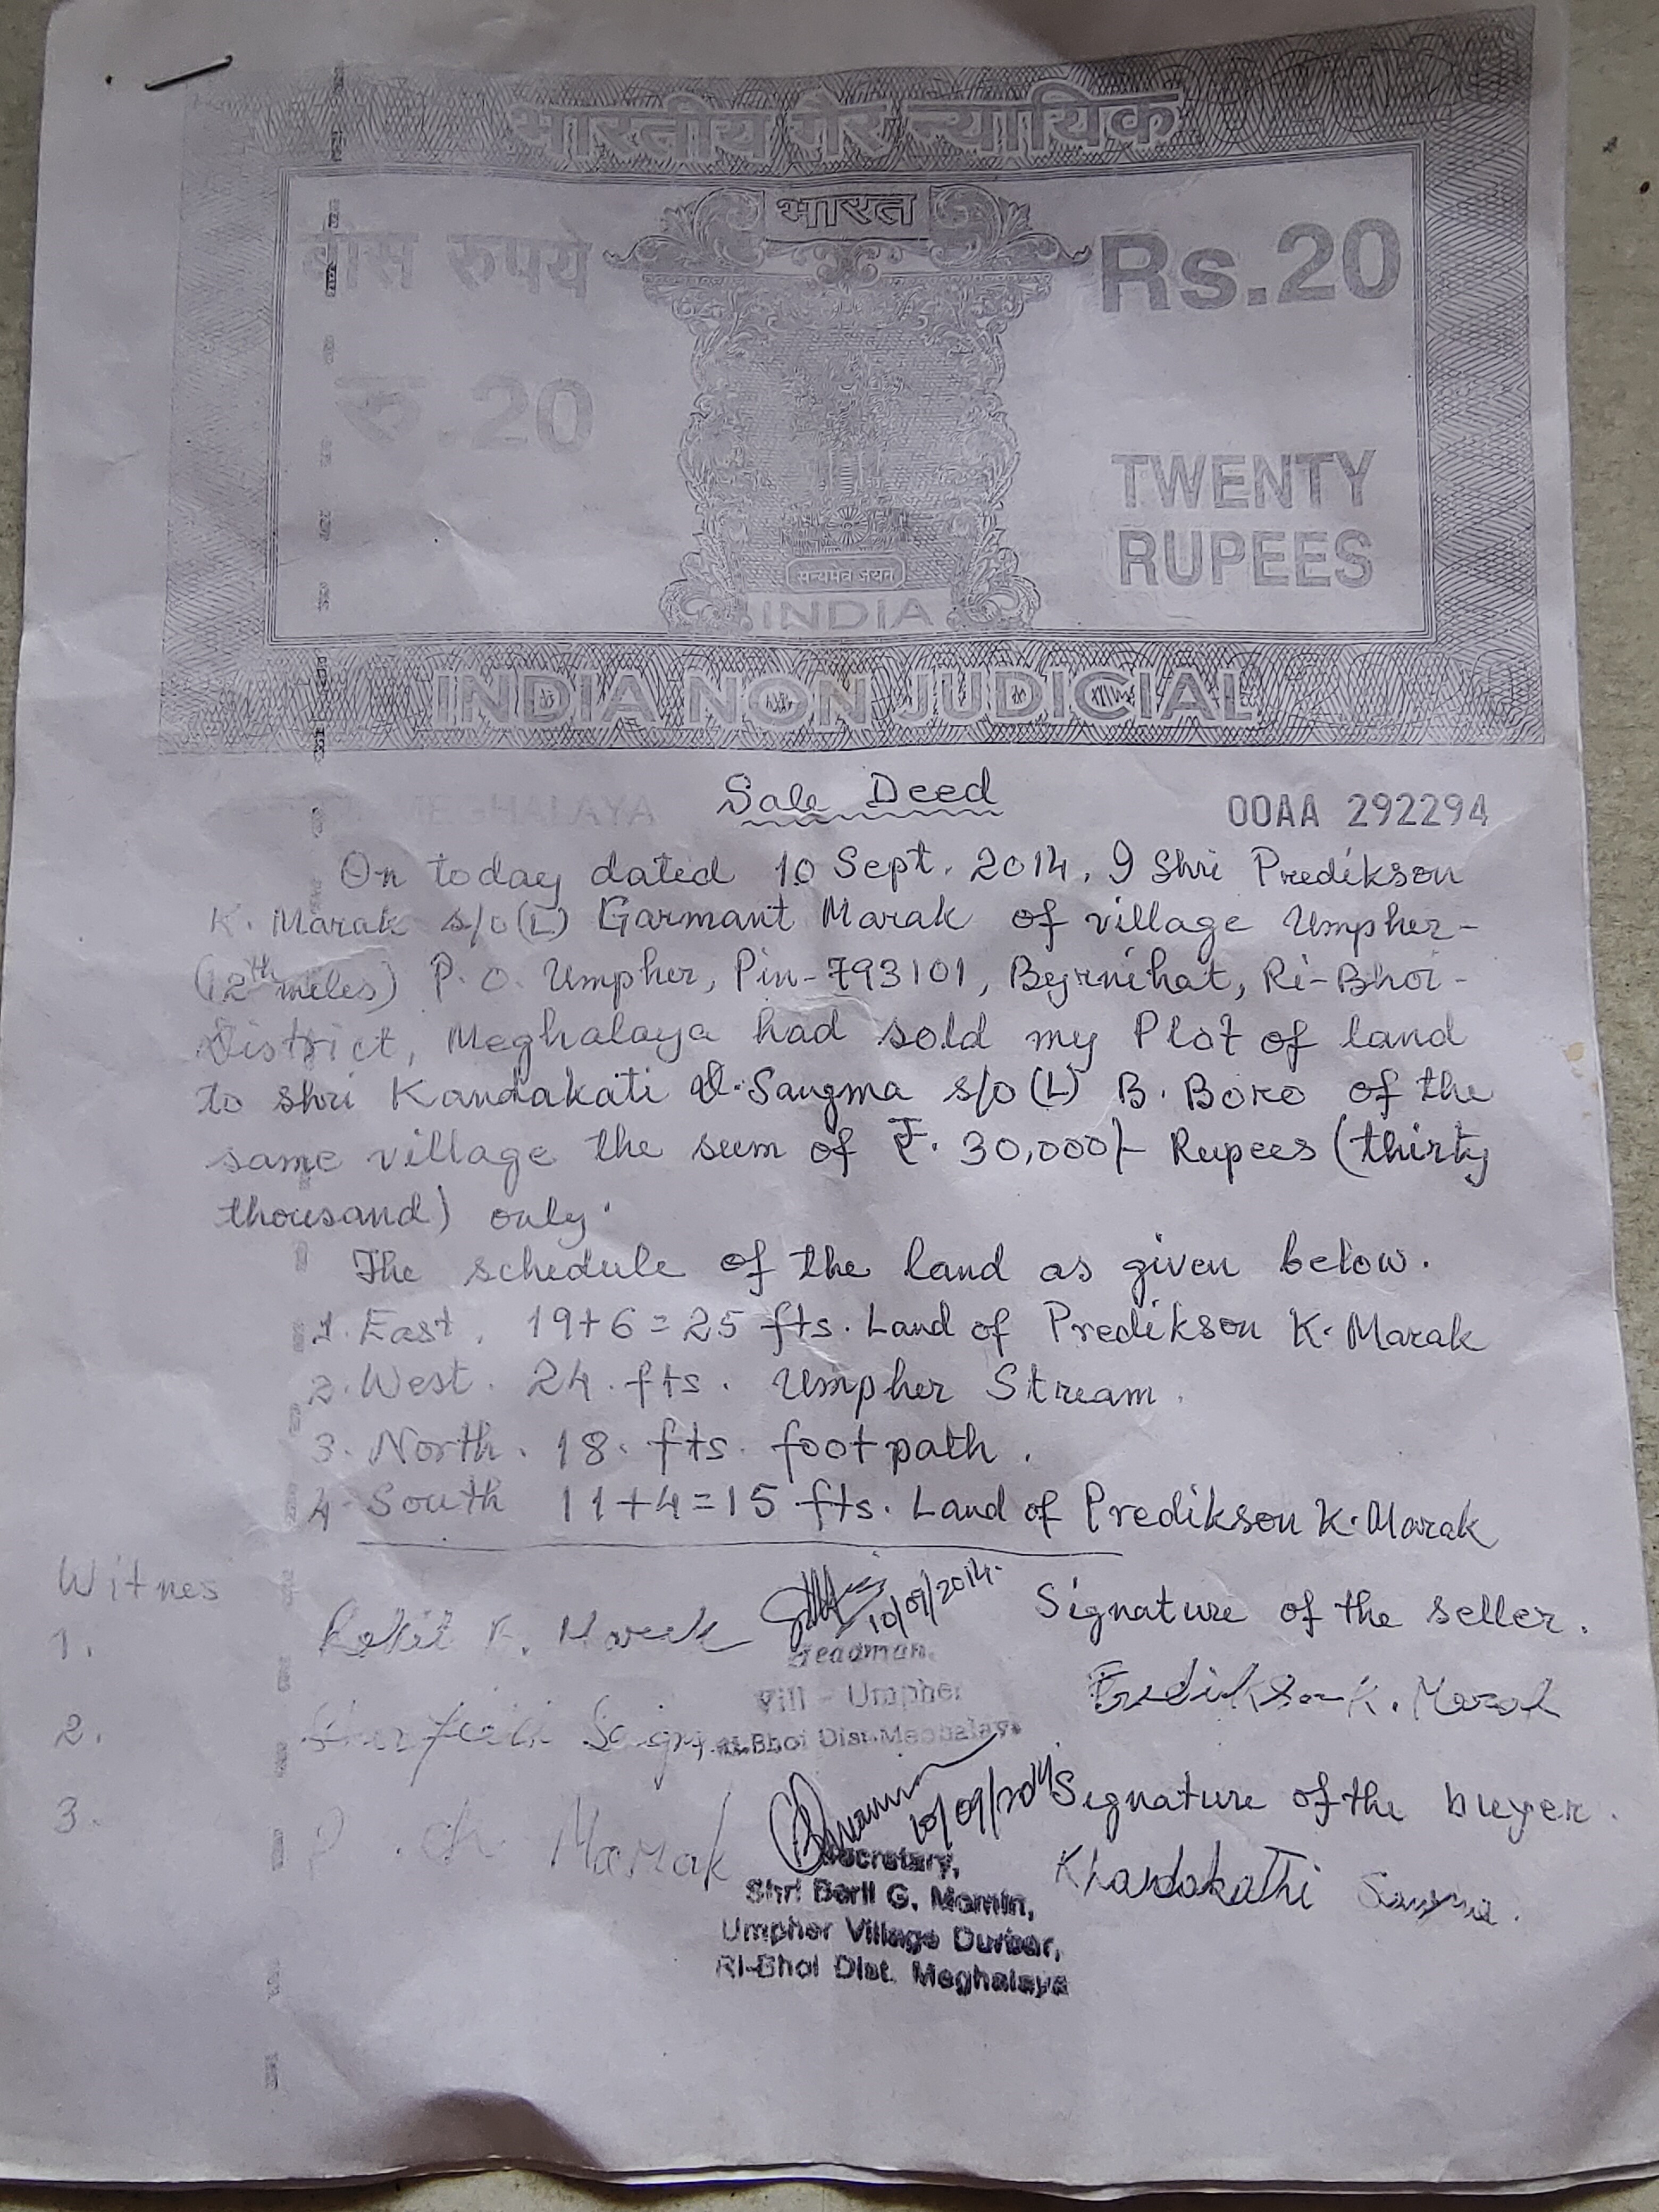 भारतीय गैर न्यायिक
भारत
बीस रुपये
Rs.20
रु.20
TWENTY
RUPEES
सत्यमेव जयते
INDIA
INDIA NON JUDICIAL
MEGHALAYA
Sale Deed
00AA 292294
On today dated 10 Sept. 2014, I Shri Predikson
K. Marak s/o (L) Garmant Marak of village Umpher-
(12th miles) P.O. Umpher, Pin-793101, Byrnihat, Ri-Bhoi-
District, Meghalaya had sold my Plot of land
to shri Kandakati D. Sangma s/o (L) B. Boro of the
same village the sum of ₹. 30,000/- Rupees (thirty
thousand) only.
The schedule of the land as given below.
1. East. 19+6=25 fts. Land of Predikson K. Marak
2. West. 24. fts. Umpher Stream.
3. North. 18. fts. footpath.
4. South 11+4=15 fts. Land of Predikson K. Marak
Witnes
1. K. Marak
10/09/2014.
Headman,
Vill - Umpher
Ri-Bhoi Dist-Meghalaya
Signature of the seller.
Predikson K. Marak
2.
3. P. Ch. Marak
10/09/2014
Secretary,
Shri Beril G. Momin,
Umpher Village Durbar,
Ri-Bhoi Dist. Meghalaya
Signature of the buyer.
Khandakathi Sangma.